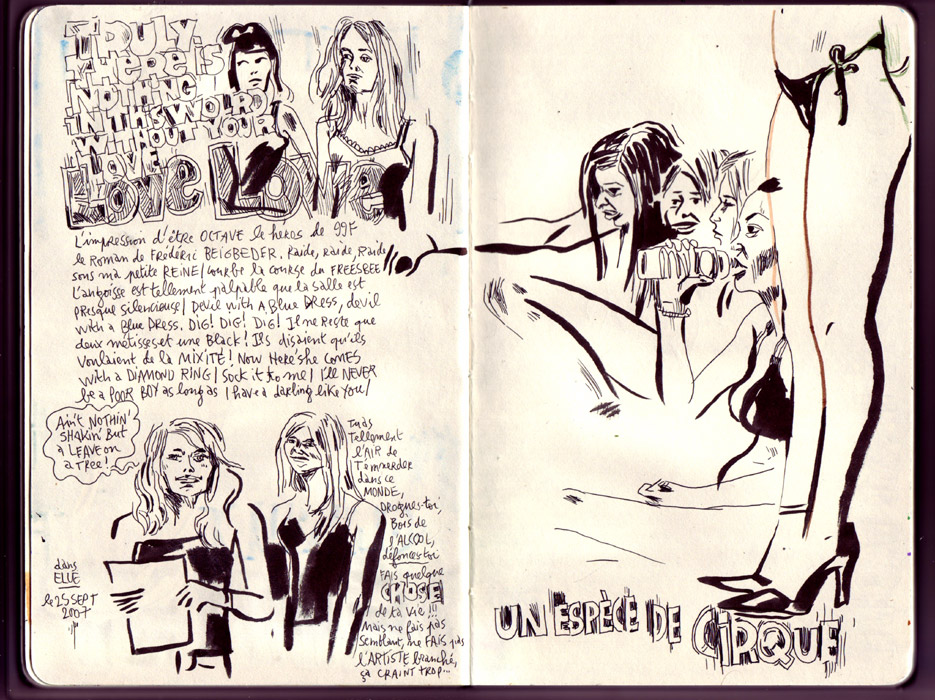 TRULY,
THERE IS
NOTHING
IN THIS WOLRD
WITHOUT YOUR
LOVE
Love Love
L'impression d'être OCTAVE le heros de 99F
le Roman de FREDERIC BEIGBEDER. Raide, raide, Raide
sous ma petite REINE/ courbe la course du FREESBEE
L'angoisse est tellement palpable que la salle est
presque silencieuse/ Devil with A Blue Dress, devil
with a Blue DRESS. DIG! DIG! DIG! Il ne Reste que
deux métisses et une Black! Ils disaient qu'ils
voulaient de la MIXITÉ! Now Here she COMES
with a DIAMOND RING/ Sock it to me/ I'll NEVER
be a POOR BOY as long as I have a darling like You/
Ain't NOTHIN'
SHAKin' But
a LEAVE on
a TREE!
Tu as
Tellement
l'AIR de
T'emmerder
dans ce
MONDE,
DROGUES-toi,
Bois de
l'ALCOOL,
défonces-toi
FAIS quelque
CHOSE
de ta vie!!!
Mais ne fais pas
semblant, ne FAIS pas
l'ARTISTE branché,
ça CRAINT TROP...
dans
ELLE
le 25 SEPT
2007
UN ESPÈCE DE CIRQUE